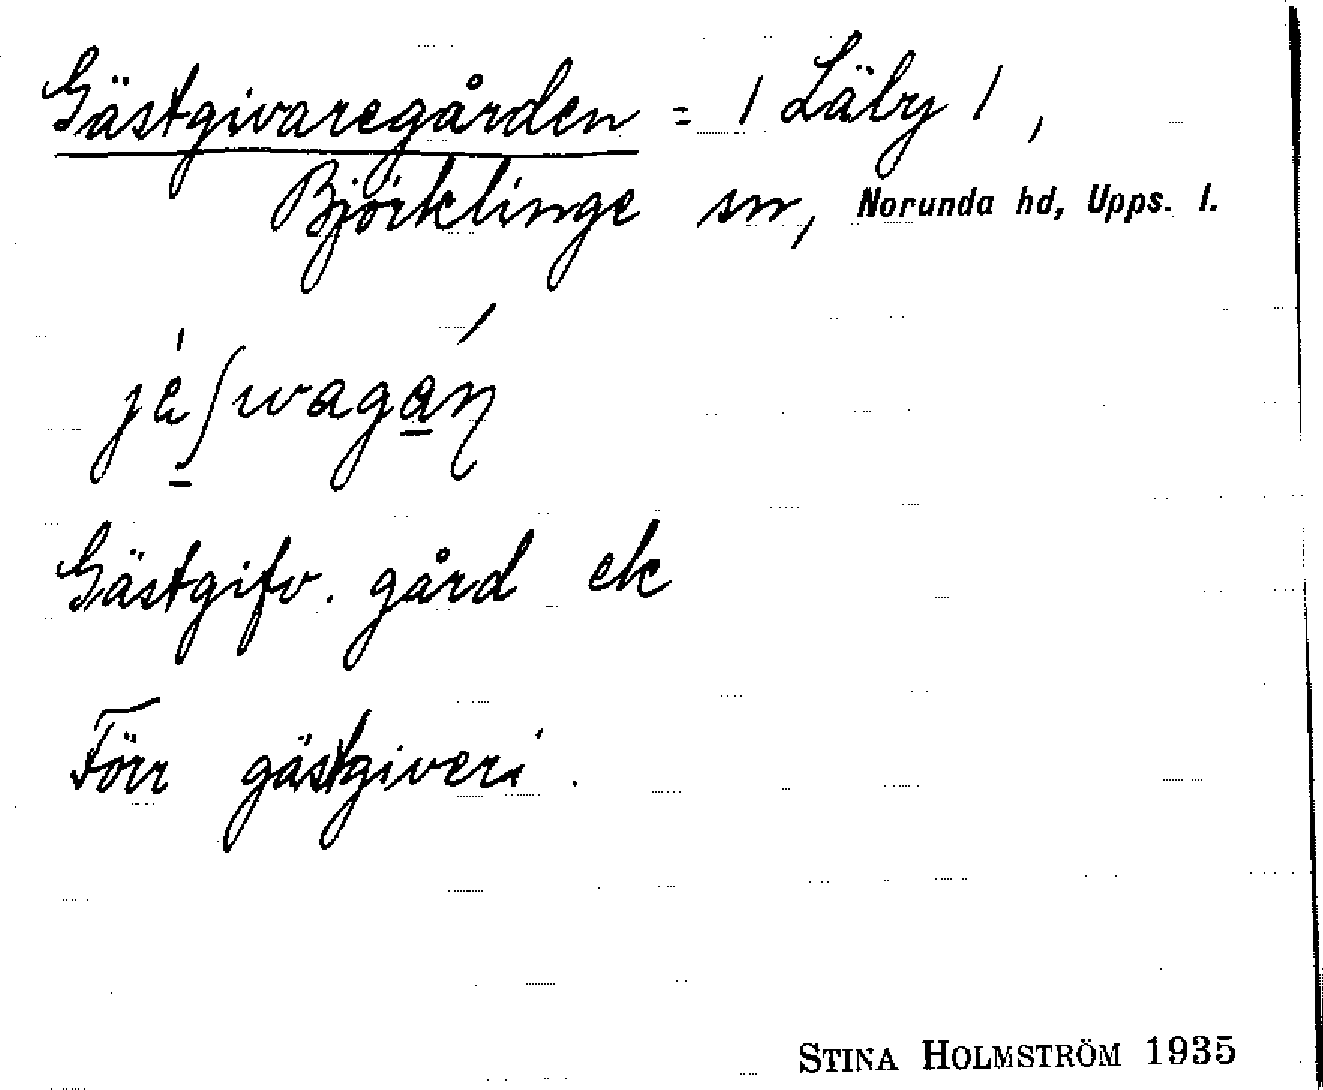 Gästgivaregården = / Läby / ,
Björklinge sn, Norunda hd, Upps. l.
Gästgifv. gård ek
Förr gästgiveri.
STINA HOLMSTRÖM 1935